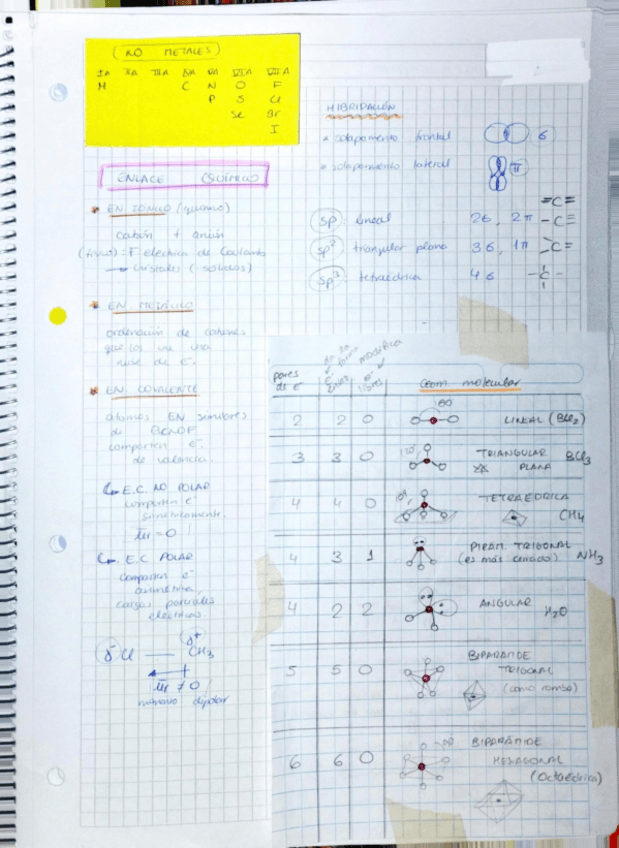 (NO METALES)
IA IIA IIIA IVA VA VIA VIIA
H C N O F
P S Cl
Se Br
I
ENLACE QUÍMICO
* EN IÓNICO (químico)
catión + anión
(físico): F eléctrica de Coulomb
→ cristales (sólidos)
* EN METÁLICO
ordenación de cationes
que los une una
nube de e⁻.
* EN COVALENTE
átomos EN similares
comparten e⁻
de valencia.
E.C. NO POLAR
comparten e⁻
simétricamente.
= 0
E.C POLAR
comparten e⁻
asimetría,
cargas parciales
eléctricas.
δ⁻ Cl — δ⁺ CH₃
≠ 0
momento dipolar
HIBRIDACIÓN
* solapamiento frontal σ
* solapamiento lateral π
sp: lineal 2σ, 2π =C= -C≡
sp²: triangular plana 3σ, 1π >C=
sp³: tetraédrica 4σ -C-
pares de e⁻ e⁻ enlace e⁻ libres Geom molecular
2 2 0 180 LINEAL (BeCl₂)
3 3 0 120° TRIANGULAR PLANA BCl₃
4 4 0 109° TETRAÉDRICA CH₄
4 3 1 PIRAM. TRIGONAL (es más cerrado) NH₃
4 2 2 ANGULAR H₂O
5 5 0 BIPIRÁMIDE TRIGONAL (como rombo)
6 6 0 90 BIPIRÁMIDE HEXAGONAL (Octaédrica)